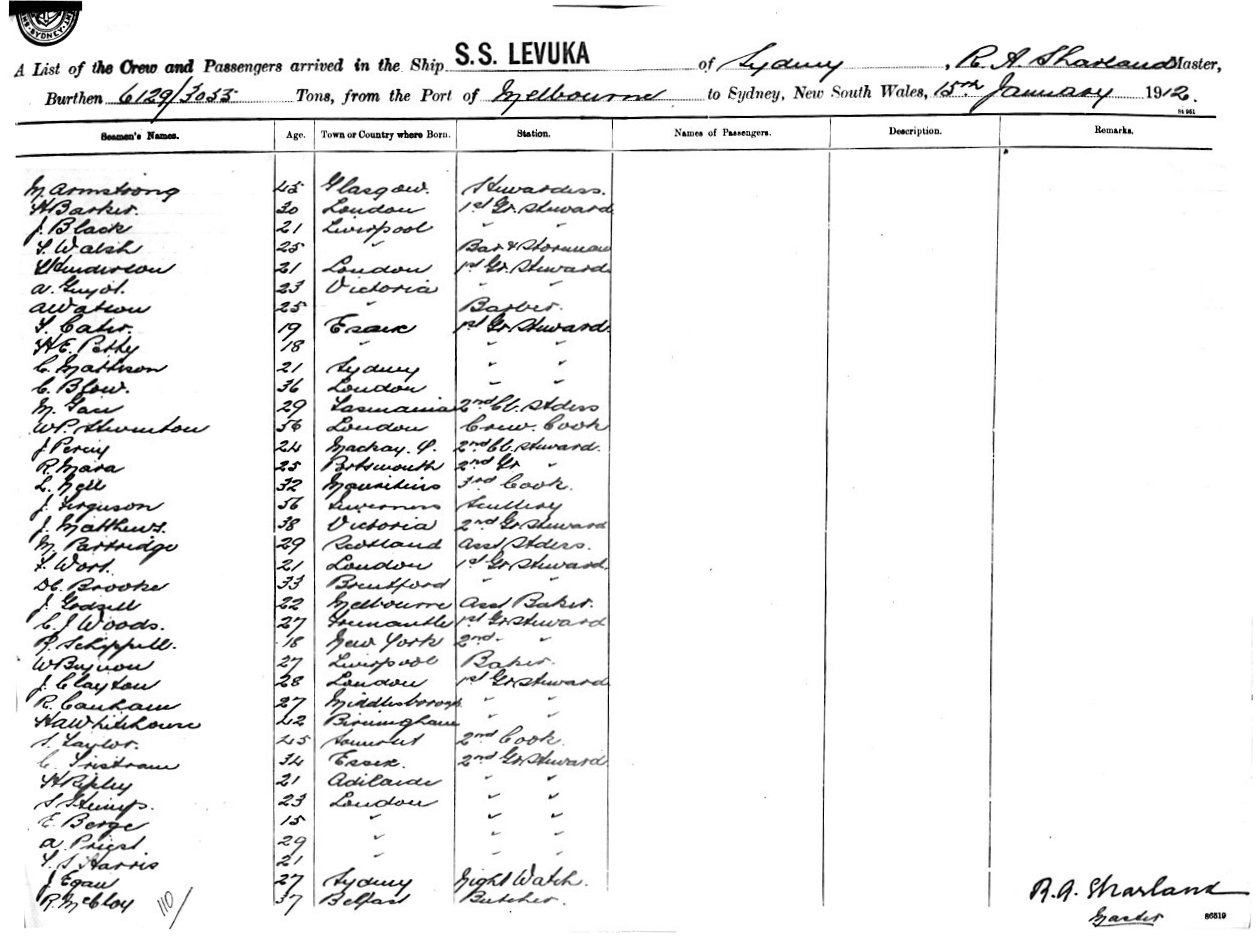 SYDNEY
A List of the Crew and Passengers arrived in the Ship S.S. LEVUKA of Sydney, R. A Sharland Master,
Burthen 6129/3055 Tons, from the Port of Melbourne to Sydney, New South Wales, 15th January 1912.
St 961
Seamen's Names. Age. Town or Country where Born. Station. Names of Passengers. Description. Remarks.
M Armstrong 45 Glasgow. Stewardess.
H Barker. 30 London 1st Gr. Steward
J. Black 21 Liverpool " "
T. Walsh 25 " Bar & Storeman
Henderson 21 London 1st Gr. Steward
A. Guyot. 23 Victoria " "
A Watson 25 " Barber.
T. Cater. 19 Essex 1st Gr. Steward.
H E. Petty 18 " " "
C. Mattison 21 Sydney " "
C. Blow. 36 London " "
M. Gair 29 Tasmania 2nd Cl. Stdess
W P. Thurnton 56 London Crew. Cook
J Percy 24 Mackay. Q. 2nd Cl. Steward.
R. Mara 25 Portsmouth 2nd Gr "
L. Nell 32 Mauritius 3rd Cook.
J. Ferguson 56 Inverness Scullery
J. Matthews. 38 Victoria 2nd Gr. Steward
M. Partridge 29 Scotland Asst Stdess.
F. Wort. 21 London 1st Gr. Steward
D C. Brooke 33 Brentford " "
J. Godsell 22 Melbourne Asst Baker.
C. J Woods. 27 Fremantle 1st Gr Steward
R. Schippell. 18 New York 2nd. "
W Bignon 27 Liverpool Baker.
J. Clayton 28 London 1st Gr Steward
R. Canham 27 Middlesborough " "
H A Whitehouse 42 Birmingham " "
S. Taylor. 45 Somerset 2nd Cook.
C. Tristram 34 Essex. 2nd Gr. Steward
H Ripley 21 Adelaide " "
S Stumps. 23 London " "
E. Berge 15 " " "
A. Priest 29 " " "
T. S Harris 21 " " "
J Egan 27 Sydney Night Watch.
R. McCloy 110/ 37 Belfast Butcher.
R. A. Sharland
Master
86519